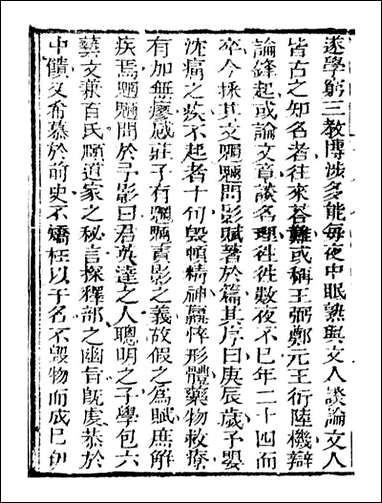 遂學窮三教博涉多能每夜中眠熟與文人談論文人
皆古之知名者往來荅難或稱王弼鄭元王衍陸機辯
論鋒起或論文章談名理徃徃數夜不巳年二十四而
卒今拯其文魍魎問影賦著於篇其序曰庚辰歲予嬰
沈痼之疾不起者十旬毀頓精神羸悴形體藥物救療
有加無瘳感莊子有魍魎責影之義故假之為賦庶解
疾焉魍魎問於予影曰君英達之人聰明之子學包六
藝文兼百氏頤道家之秘言探釋部之幽旨既虔恭於
中饋又希慕於前史不矯枉以于名不毀物而成巳伊